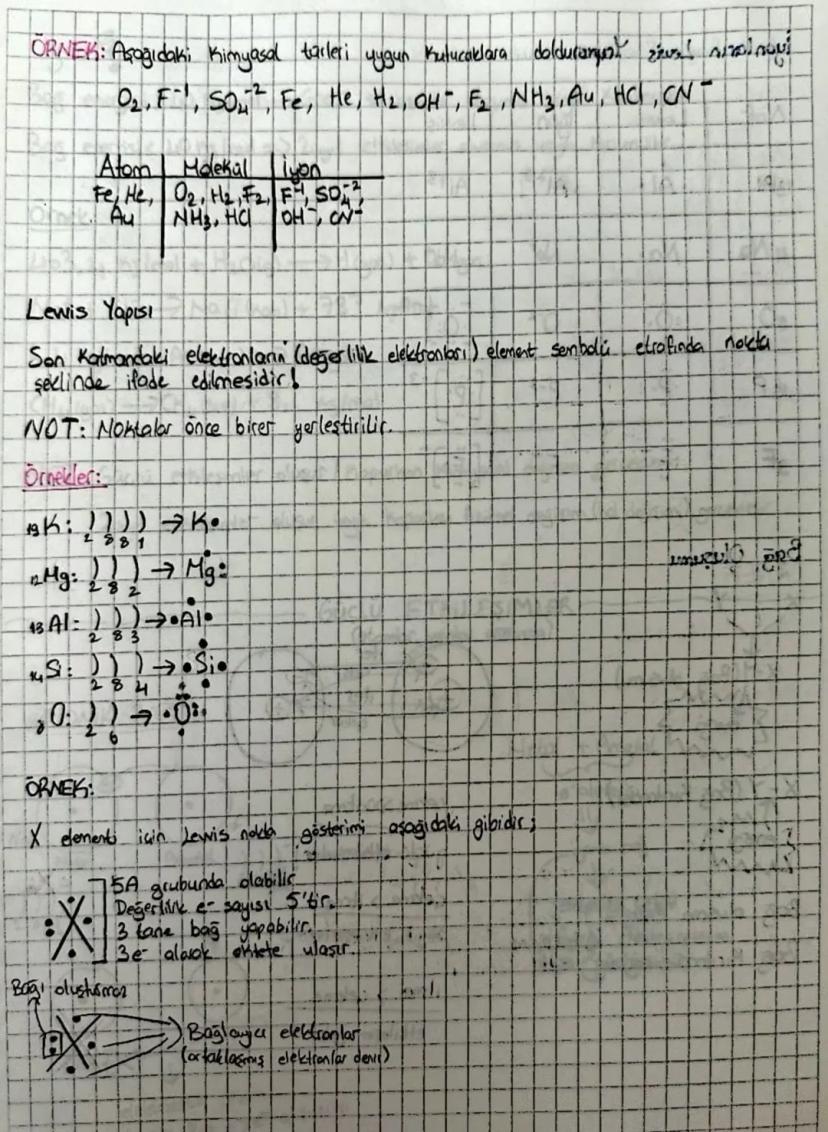 ÖRNEK: Aşağıdaki kimyasal türleri uygun kutucuklara doldurunuz!
O₂, F⁻¹, SO₄⁻², Fe, He, H₂, OH⁻, F₂, NH₃, Au, HCl, CN⁻
Atom | Molekül | İyon
Fe, He, | O₂, H₂, F₂, | F⁻¹, SO₄⁻²,
Au | NH₃, HCl | OH⁻, CN⁻
Lewis Yapısı
Son katmandaki elektronların (değerlilik elektronları) element sembolü etrafında nokta
şeklinde ifade edilmesidir!
NOT: Noktalar önce birer yerleştirilir.
Örnekler:
₁₉K: ) ) ) ) → K•
2 8 8 1
₁₂Mg: ) ) ) → Mg:
2 8 2
₁₃Al: ) ) ) → •Al•
2 8 3
₁₄Si: ) ) ) → •Si•
2 8 4
₈O: ) ) → •O:
2 6
ÖRNEK:
X elementi için Lewis nokta gösterimi aşağıdaki gibidir;
5A grubunda olabilir
Değerlilik e- sayısı 5'tir.
X
3 tane bağ yapabilir.
3e- alarak oktete ulaşır.
Bağı oluşturmaz
X
Bağlayıcı elektronlar
(ortaklaşmış elektronlar denir)